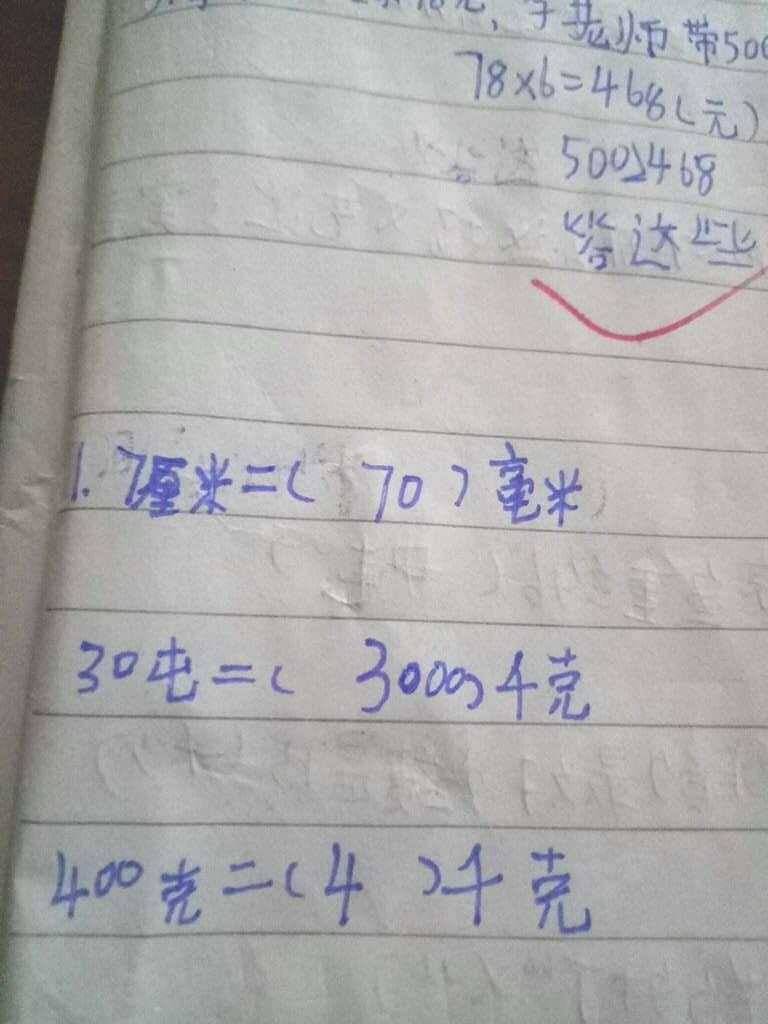 带500
78×6=468(元)
500>468
答这些
1.7厘米=( 70 )毫米
30屯=( 3000)千克
400克=(4 )千克